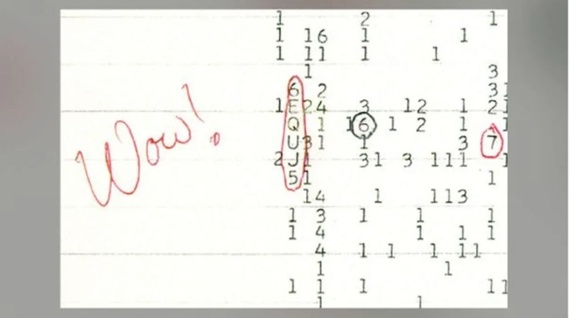 1 2 1
1 16 1 1
1 11 1 1
1 3
6 2 31
1 E 24 3 12 1 21
Wow! Q 1 16 1 2 1 1
U 31 1 3 7
2 J 1 31 3 111 1
5 1 1
14 1 113
1 3 1 1 1
1 4 1 1 1
4 1 1 1 11
1 1
1 1 1 11
1 1